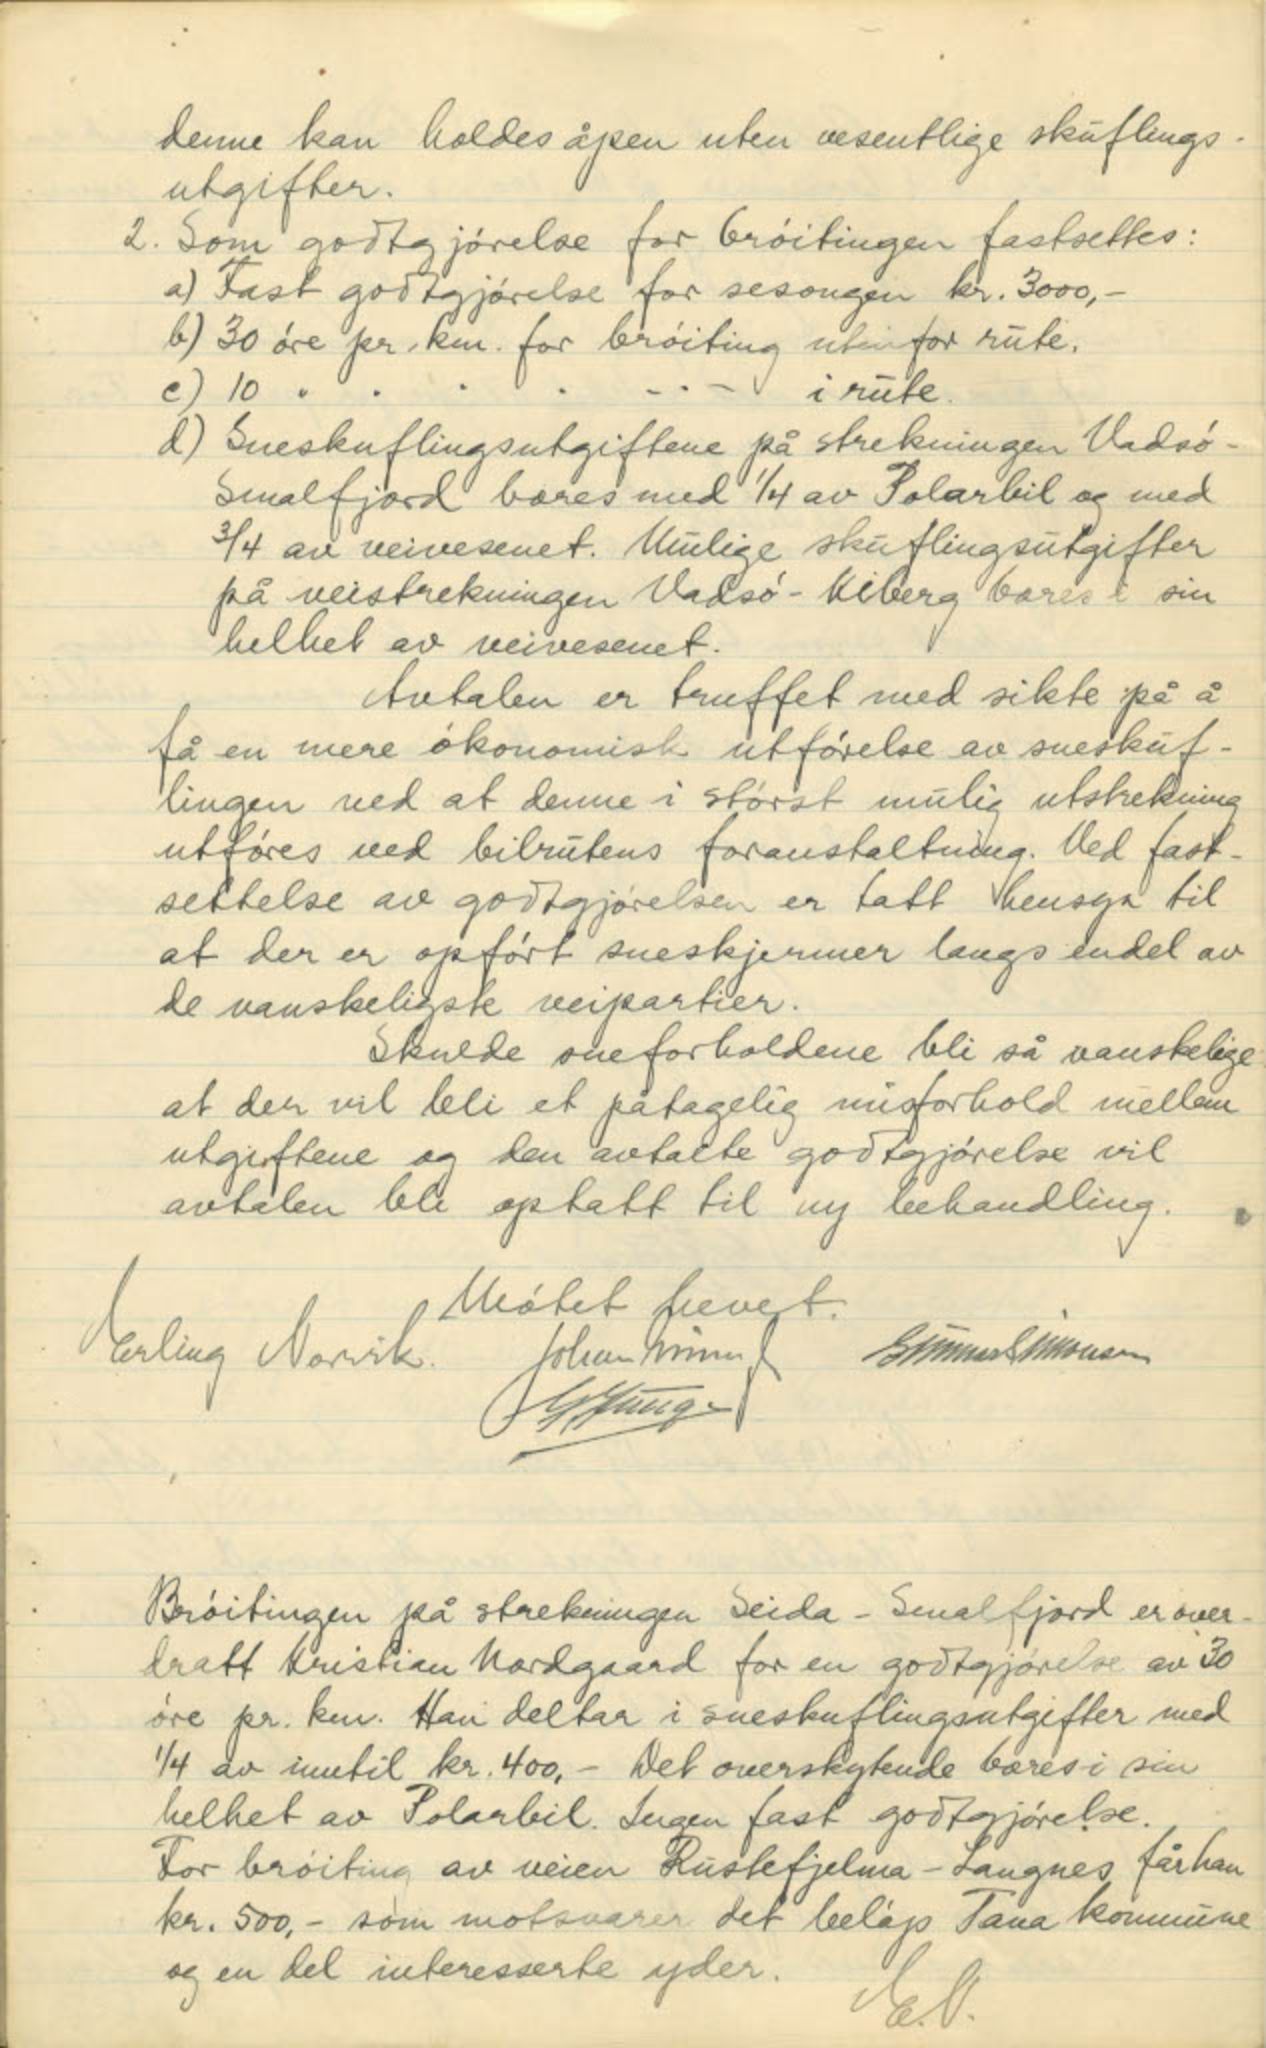 denne kan holdes åpen uten vesentlige skuflings-
utgifter.
2. Som godtgjórelse for bróitingen fastsettes:
a) Fast godtgjórelse for sesongen kr. 3000,-
b) 30 óre pr. km. for bróiting utenfor rute.
c) 10 " " " " - " - i rute.
d) Sneskuflingsutgiftene på strekningen Vadsó-
Smalfjord bæres med 1/4 av Polarbil og med
3/4 av veivesenet. Mulige skuflingsutgifter
på veistrekningen Vadsó - Kiberg bæres i sin
helhet av veivesenet.
Avtalen er truffet med sikte på å
få en mere ókonomisk utfórelse av sneskuf-
lingen ved at denne i stórst mulig utstrekning
utfóres ved bilrutens foranstaltning. Ved fast-
settelse av godtgjórelsen er tatt hensyn til
at der er opfórt sneskjermer langs endel av
de vanskeligste veipartier.
Skulde sneforholdene bli så vanskelige
at der vil bli et påtagelig misforhold mellem
utgiftene og den avtalte godtgjórelse vil
avtalen bli optatt til ny behandling.
Mótet hevet.
Erling Norvik. Johan
Bróitingen på strekningen Seida - Smalfjord er over-
dratt Kristian Nordgaard for en godtgjórelse av 30
óre pr. km. Han deltar i sneskuflingsutgifter med
1/4 av inntil kr. 400,- Det overskytende bæres i sin
helhet av Polarbil. Ingen fast godtgjórelse.
For bróiting av veien Rustefjelma - Langnes får han
kr. 500,- som motsvarer det beláp Tana kommune
og en del interesserte yder.
E.N.